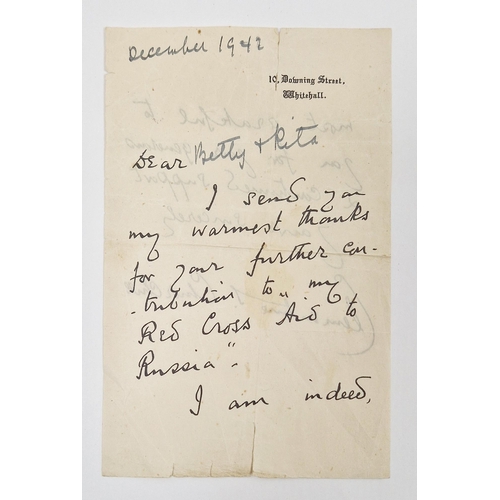 December 1942
10, Downing Street,
Whitehall.
Dear Betty & Rita
I send you
my warmest thanks
for your further con-
-tribution to "my
Red Cross Aid to
Russia".
I am indeed,